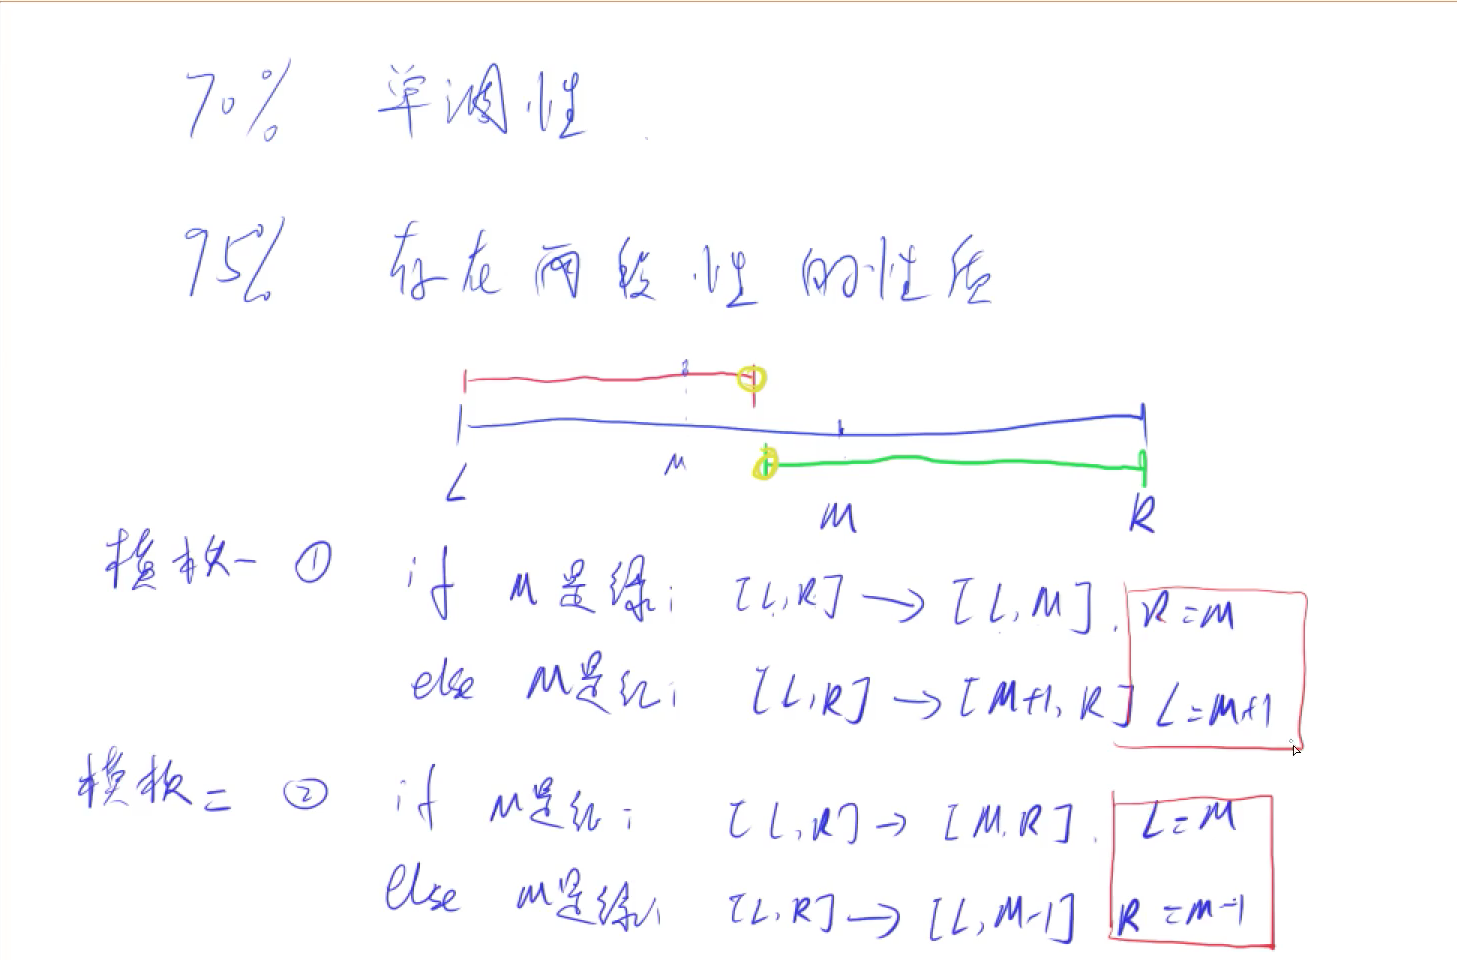 70% 单调性
95% 存在两段性的性质
M
L M R
模板一 ① if M是绿; [L,R] → [L,M]. R=M
else M是红; [L,R] → [M+1,R] L=M+1
模板二 ② if M是红; [L,R] → [M,R]. L=M
else M是绿; [L,R] → [L,M-1] R=M-1